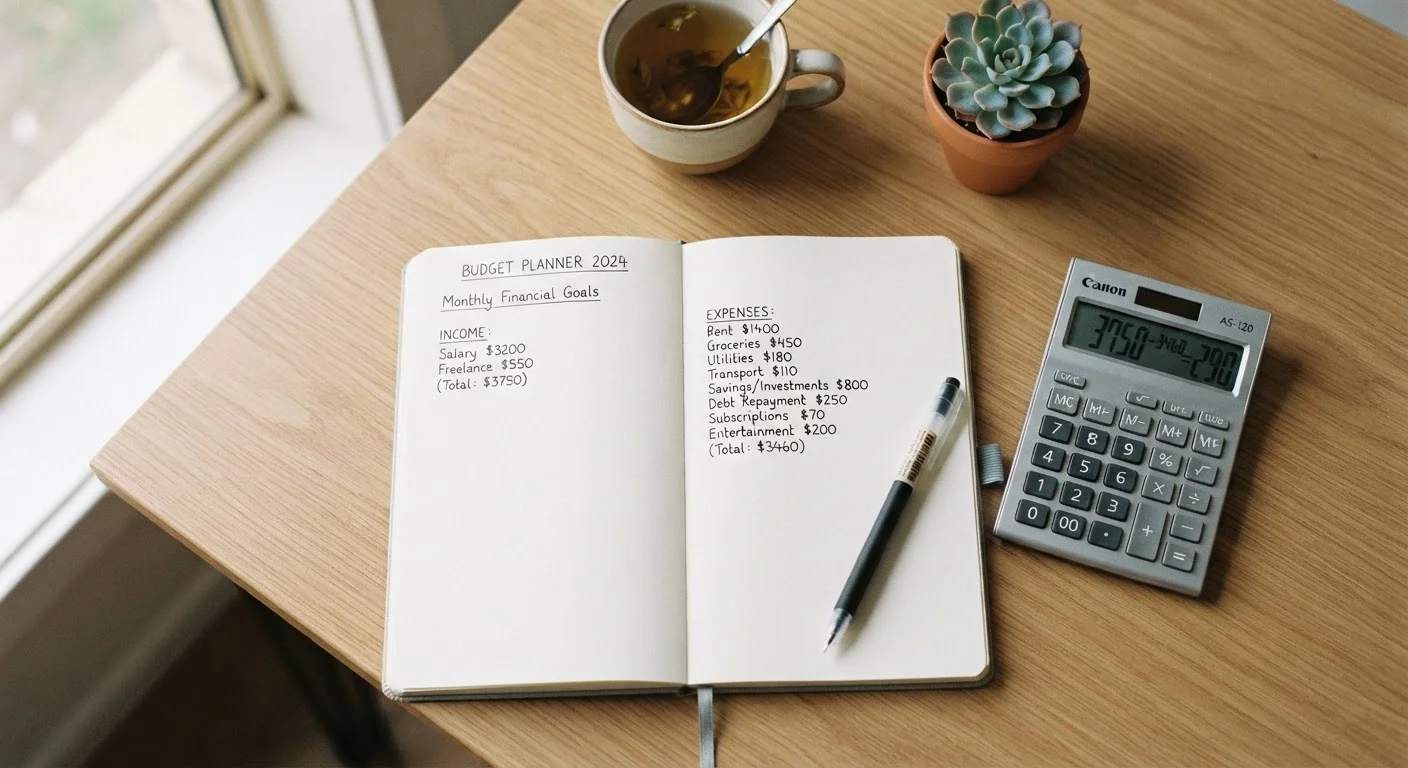 BUDGET PLANNER 2024
Monthly Financial Goals
INCOME:
Salary $3200
Freelance $550
(Total: $3750)
EXPENSES:
Rent $1400
Groceries $450
Utilities $180
Transport $110
Savings/Investments $800
Debt Repayment $250
Subscriptions $70
Entertainment $200
(Total: $3460)
Canon
AS-120
3750-3460=290
MC M- M+
7 8 9 %
4 5 6 × ÷
1 2 3 + −
0 00 . =